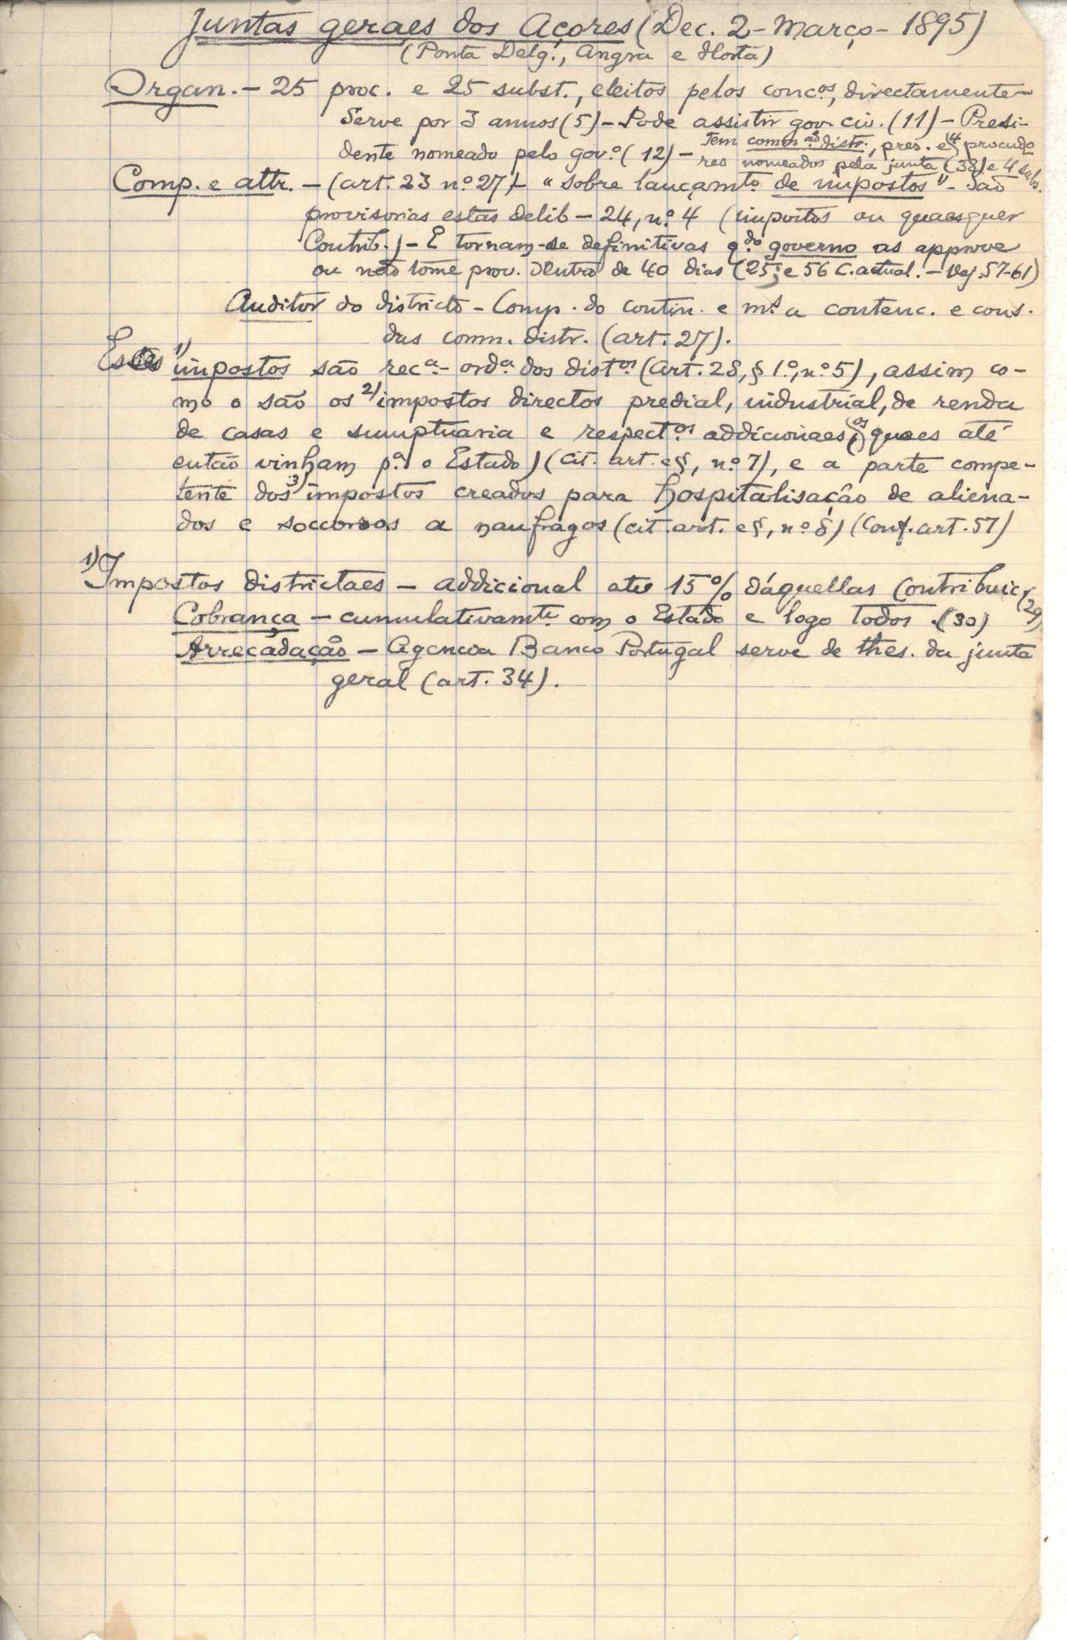 Juntas geraes dos Açores (Dec. 2-Março-1895)
(Ponta Delg., Angra e Horta)
Organ. - 25 proc. e 25 subst., eleitos pelos conc.os, directamente -
Serve por 3 annos (5) - Pode assistir gov. civ. (11) - Presi-
dente nomeado pelo gov.º (12) - Tem comm.ão distr., pres. e 4 procudo
res nomeados pela junta (38) e 4 subs.
Comp. e attr. - (art. 23 nº 27) - "sobre lançamto de impostos" - São
provisorias estas delib - 24, nº 4 (impostos ou quaesquer
Contrib.) - E tornam-se definitivas q.do governo as approve
ou não tome prov. dentro de 40 dias (25; e 56 C. actual. - Vej. 57-61)
Auditor do districto - Comp. do contin. e m.s a contenc. e cons.
das comm. distr. (art. 27).
Estes 1) impostos são rec.a - ord.a dos dist.os (art. 28, § 1º, nº 5), assim co-
mo o são os 2) impostos directos predial, industrial, de renda
de casas e sumptuaria e respect.os addicionaes (os quaes até
então vinham p.a o Estado) (cit. art. e §, nº 7), e a parte compe-
tente dos 3) impostos creados para hospitalisação de aliena-
dos e soccorros a naufragos (cit. art. e §, nº 8) (Conf. art. 57)
1) Impostos districtaes - addicional até 15% d'áquellas Contribuiç. (29)
Cobrança - cumulativamte com o Estado e logo todos. (30)
Arrecadação - Agencia Banco Portugal serve de thes. da junta
geral (art. 34).